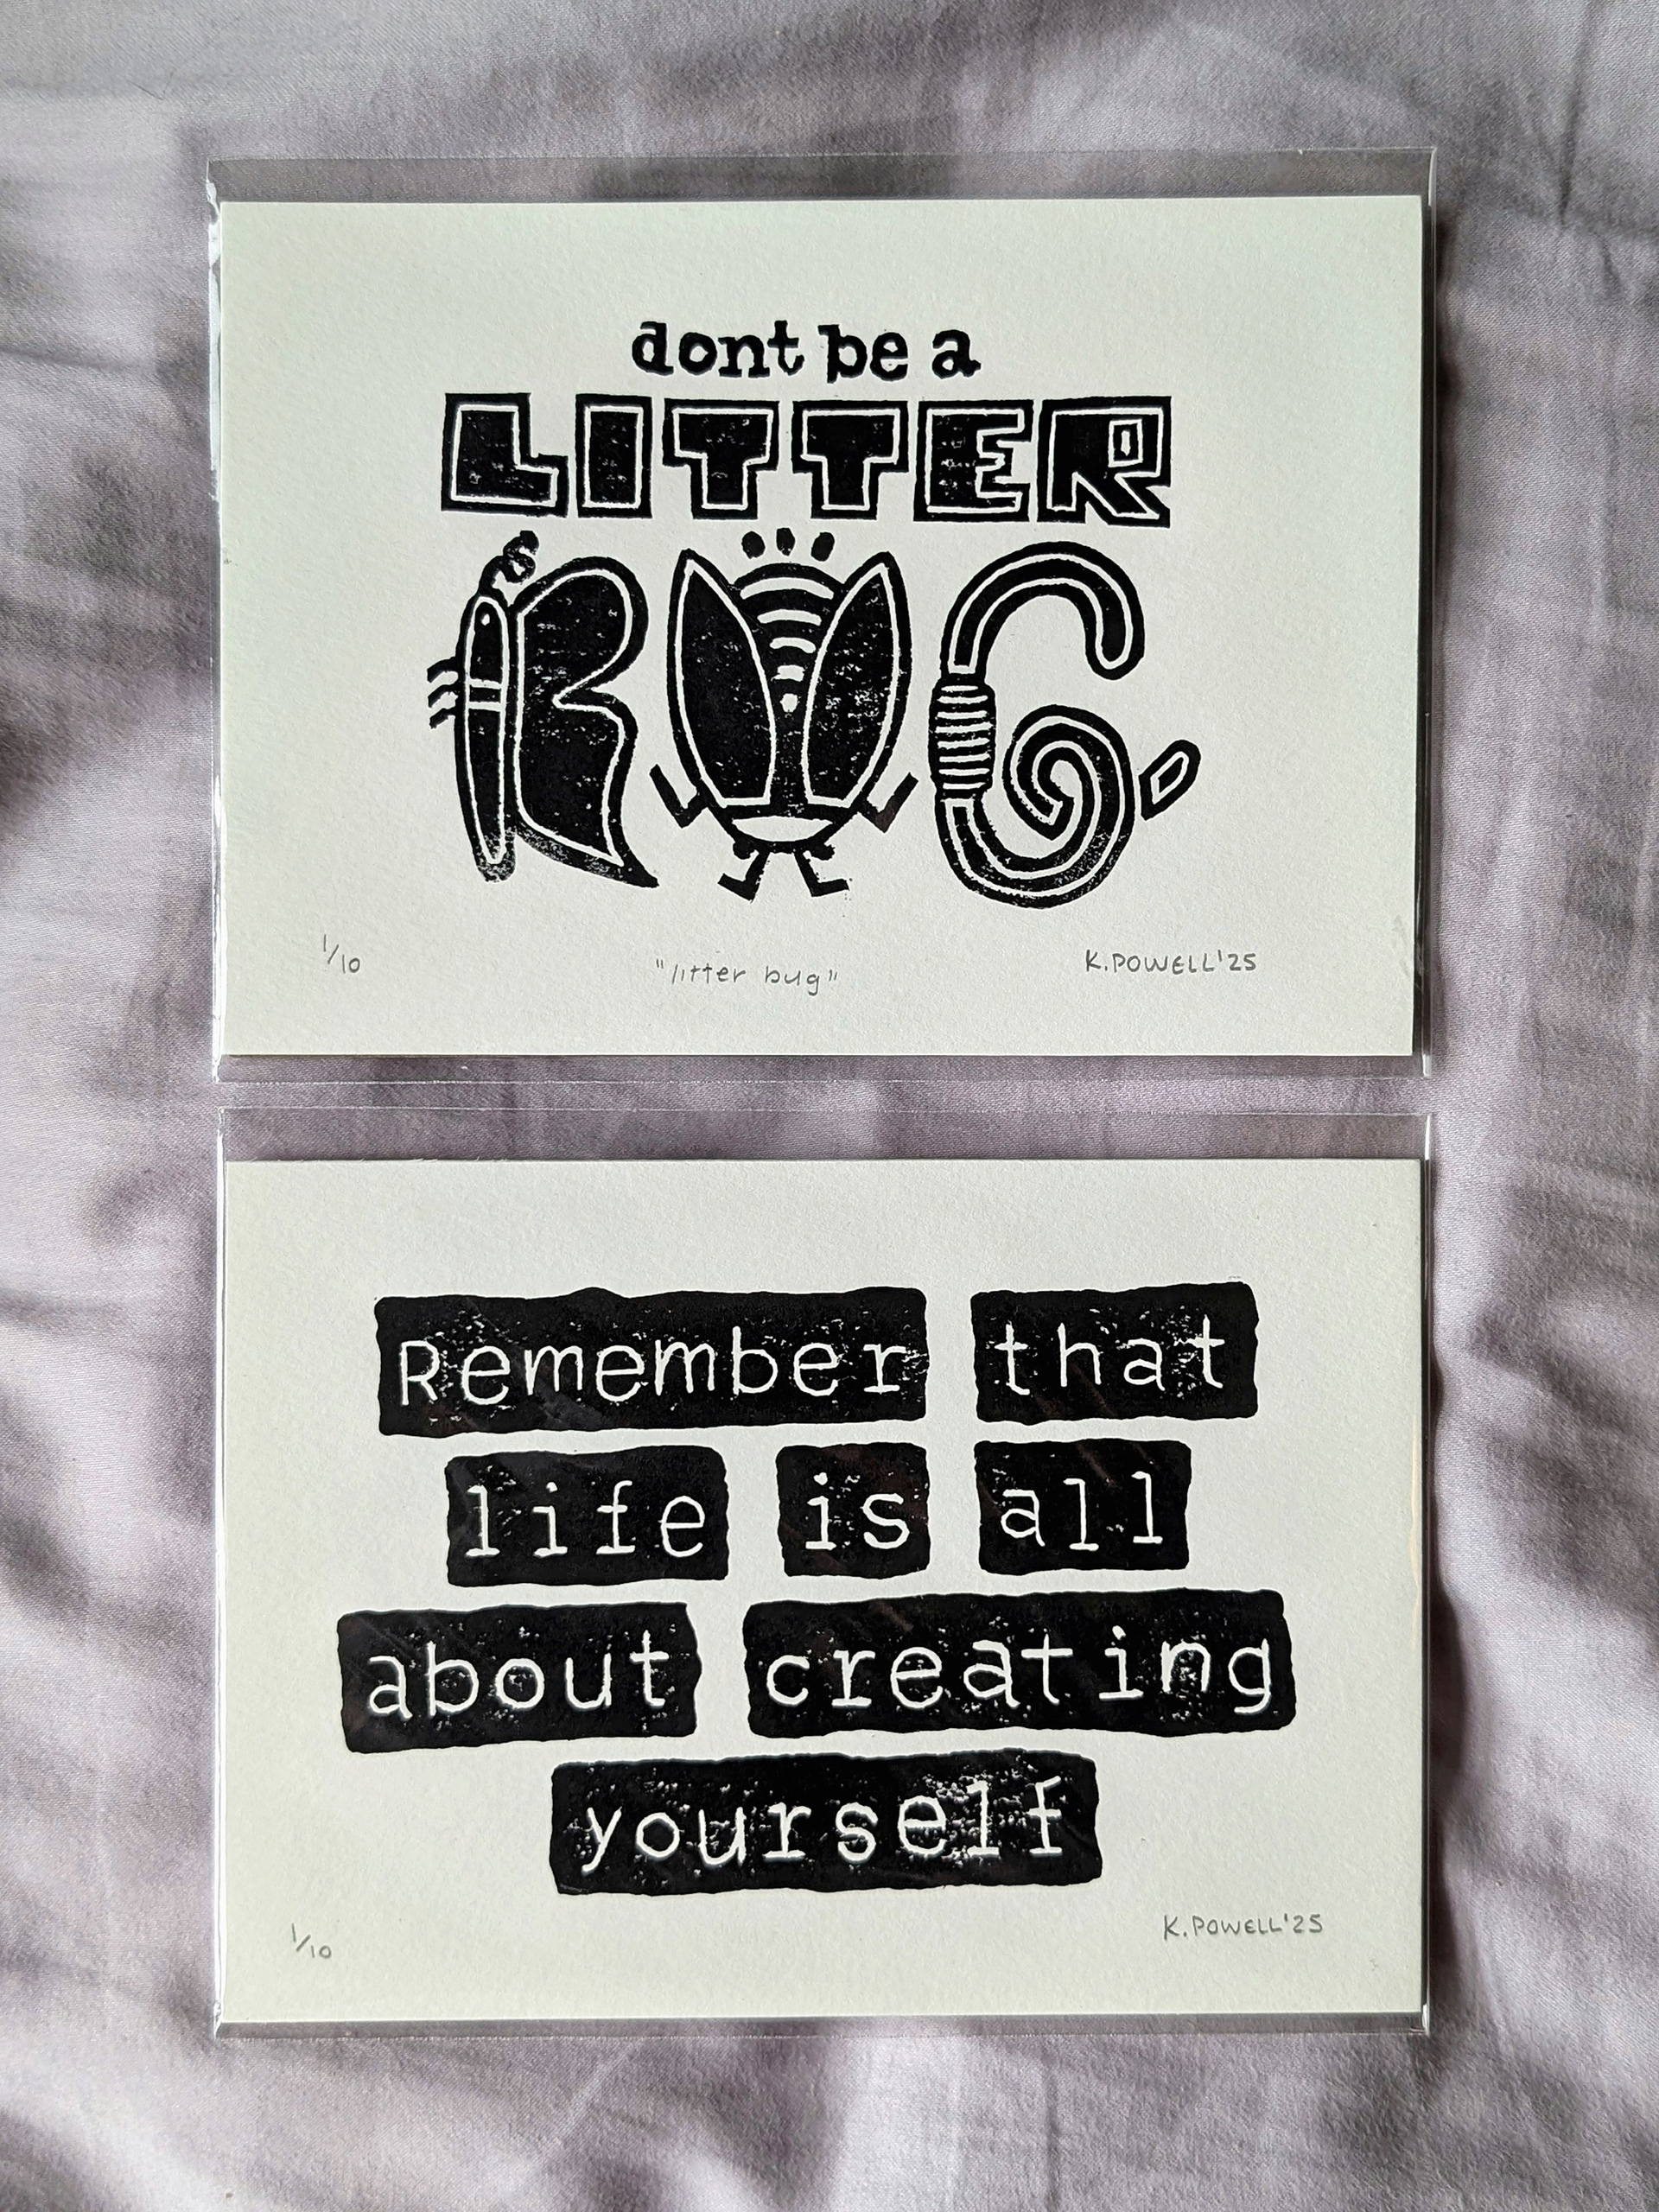 dont be a
LITTER
BUG
1/10 "litter bug" K.POWELL'25
Remember that
life is all
about creating
yourself
1/10 K.POWELL'25